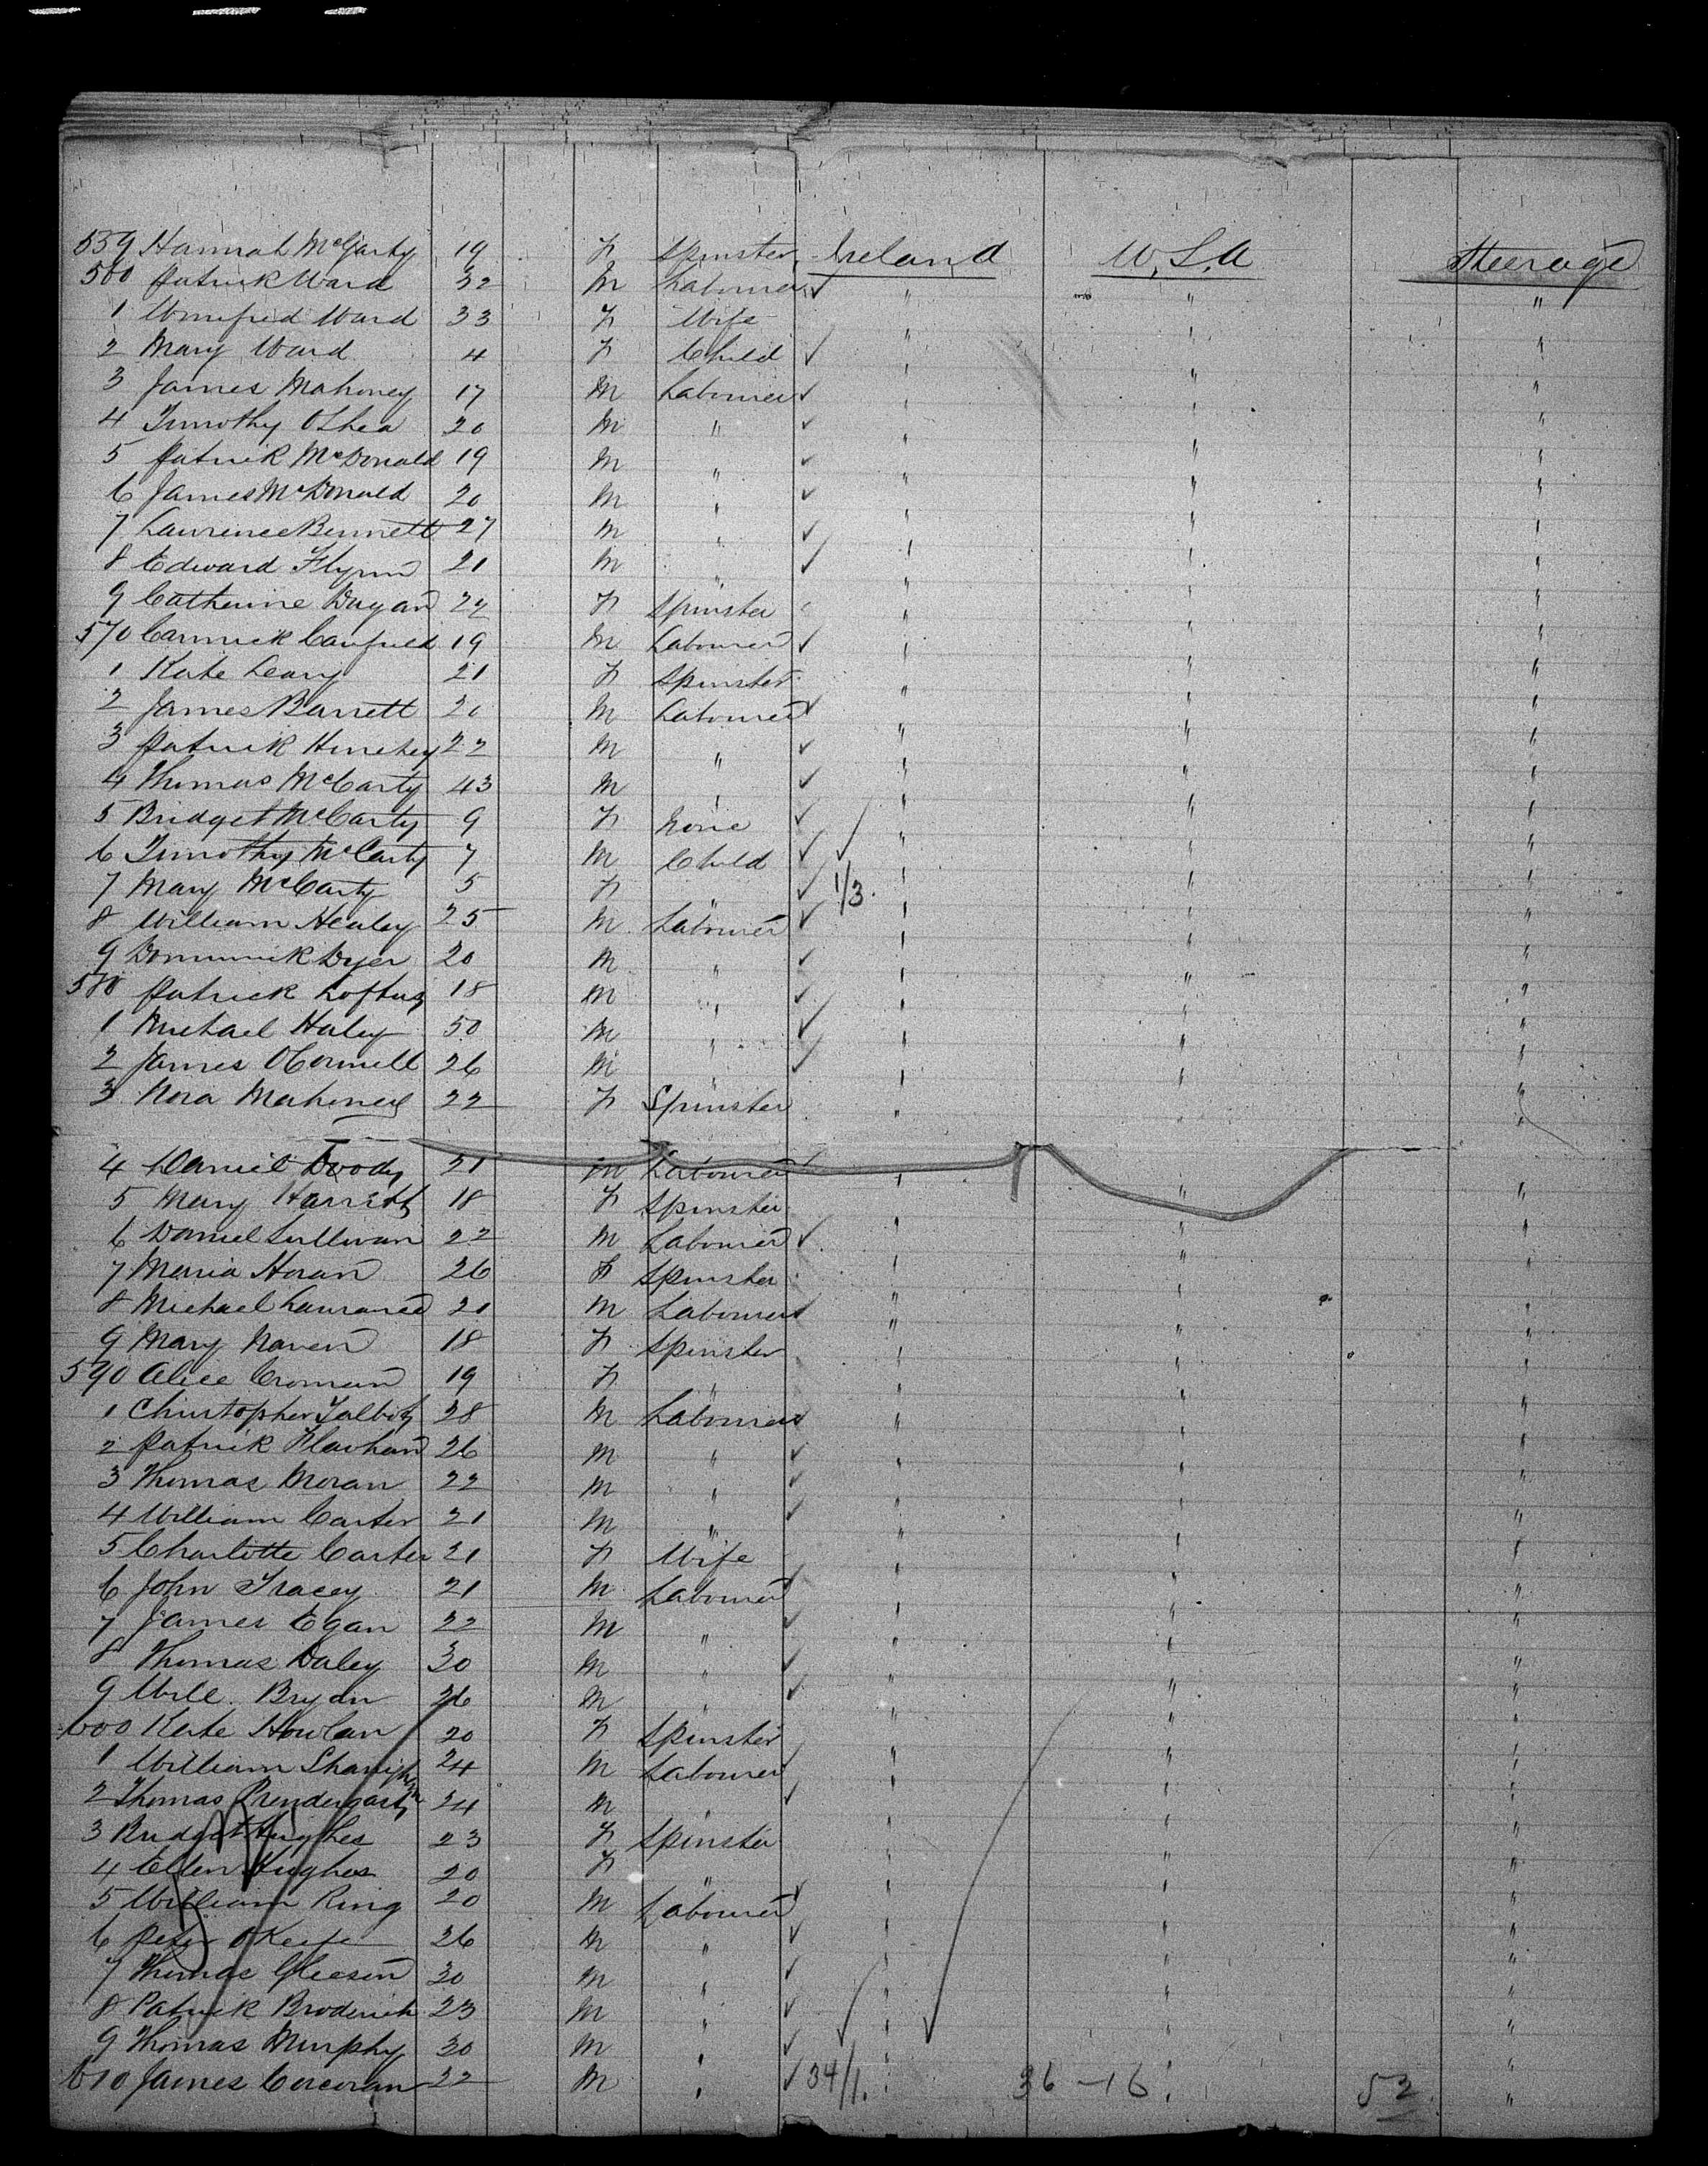 559 Hannah McGarty 19 F Spinster Ireland U.S.A Steerage
560 Patrick Ward 32 M Labourer " " "
1 Winifred Ward 33 F Wife " " "
2 Mary Ward 4 F Child " " "
3 James Mahoney 17 M Labourer " " "
4 Timothy OShea 20 M " " " "
5 Patrick McDonald 19 M " " " "
6 James McDonald 20 M " " " "
7 Laurence Bennett 27 M " " " "
8 Edward Flynn 21 M " " " "
9 Catherine Dugan 22 F Spinster " " "
570 Carmick Caufield 19 M Labourer " " "
1 Kate Leary 21 F Spinster " " "
2 James Barrett 20 M Labourer " " "
3 Patrick Hinchey 22 M " " " "
4 Thomas McCarty 43 M " " " "
5 Bridget McCarty 9 F None " " "
6 Timothy McCarty 7 M Child " " "
7 Mary McCarty 5 F " 1/3. " " "
8 William Healey 25 M Labourer " " "
9 Dominick Dyer 20 M " " " "
580 Patrick Loftus 18 M " " " "
1 Michael Haley 50 M " " " "
2 James OConnell 26 M " " " "
3 Nora Mahoney 22 F Spinster " " "
4 Daniel Doody 21 M Labourer " " "
5 Mary Harrity 18 F Spinster " " "
6 Daniel Sullivan 22 M Labourer " " "
7 Maria Horan 26 F Spinster " " "
8 Michael Laurance 20 M Labourer " " "
9 Mary Naven 18 F Spinster " " "
590 Alice Cronan 19 F " " " "
1 Christopher Talbot 28 M Labourer " " "
2 Patrick Flavhan 26 M " " " "
3 Thomas Moran 22 M " " " "
4 William Carter 21 M " " " "
5 Charlotte Carter 21 F Wife " " "
6 John Tracey 21 M Labourer " " "
7 James Egan 22 M " " " "
8 Thomas Daley 30 M " " " "
9 Will. Bryan 26 M " " " "
600 Kate Howlan 20 F Spinster " " "
1 William Shanighan 24 M Labourer " " "
2 Thomas Prendergast 24 M " " " "
3 Bridget Hughes 23 F Spinster " " "
4 Ellen Hughes 20 F " " " "
5 William Ring 20 M Labourer " " "
6 Peter OKeefe 26 M " " " "
7 Thomas Gleeson 30 M " " " "
8 Patrick Broderick 23 M " " " "
9 Thomas Murphy 30 M " " " "
610 James Corcoran 22 M " 34/1. " 36-16 " 52 "